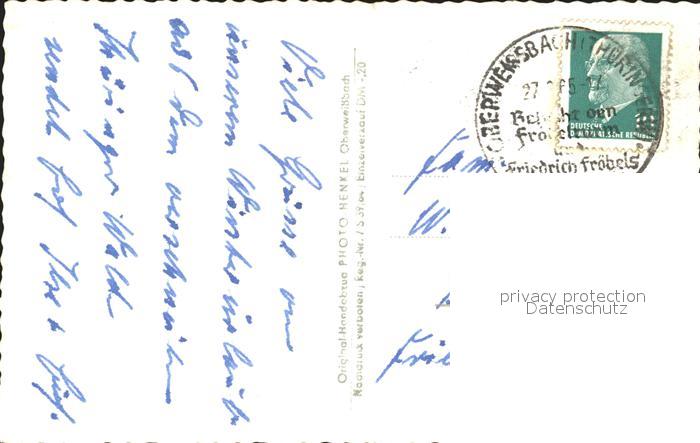 Viele Grüße von
unserem Winterurlaub
aus dem verschneiten
Thüringer Wald
sendet
Original-Handabzug PHOTO HENKEL Oberweißbach
Nachdruck verboten / Reg.-Nr. / Einzelverkauf DM -,20
OBERWEISSBACH (THÜRINGER
27
65
Besucht den
Fröbelturm
und
Friedrich Fröbels
DEUTSCHE
DEMOKRATISCHE REPUBLIK
Fam
W.
privacy protection
Datenschutz